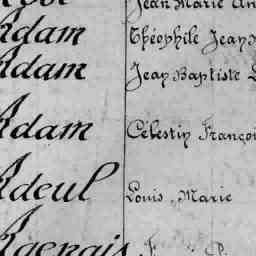 Jean Marie
Adam Théophile Jean
Adam Jean Baptiste
Adam Célestin Françoi
Adeul Louis Marie